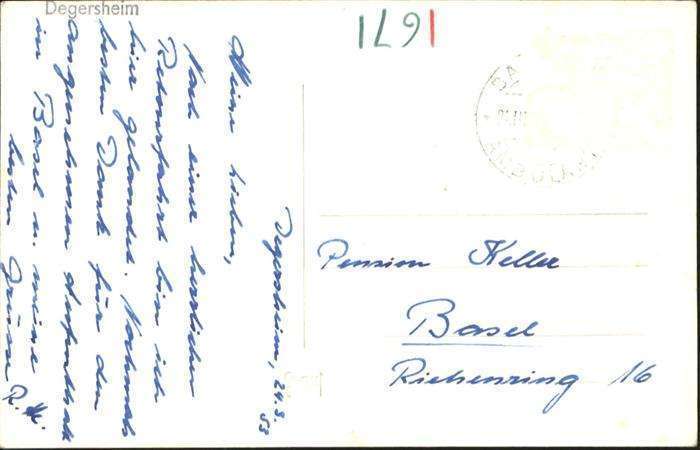 Degersheim
1671
Degersheim, 24.3.
53
Meine Lieben,
Nach einer herrlichen
Retourfahrt bin ich
hier gelandet. Nochmals
besten Dank für den
angenehmen Aufenthalt
in Basel u. meine
besten Grüsse
Pension Keller
Basel
Riehenring 16